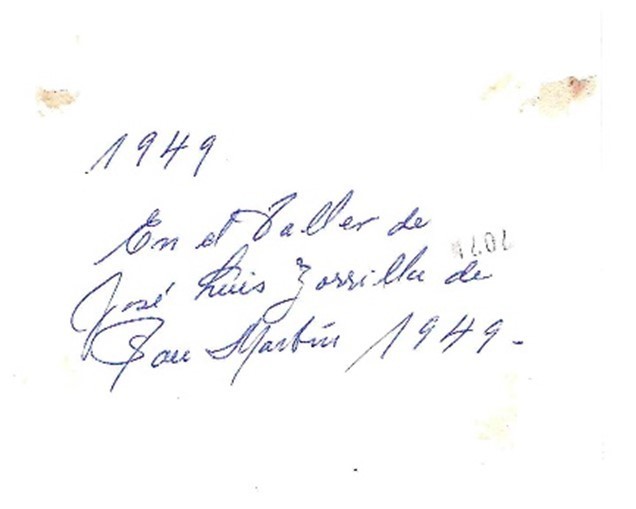 1949
En el Taller de
José Luis Zorrilla de
San Martín 1949.